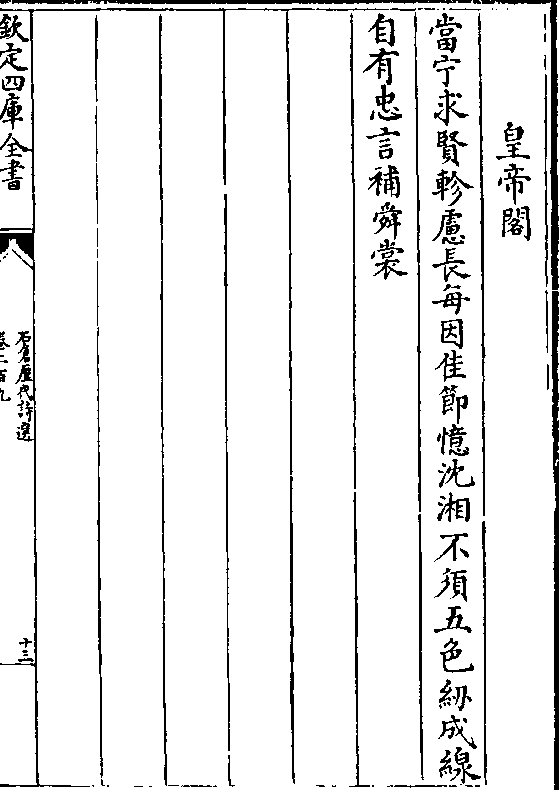 皇帝閣
當宁求賢軫慮長每因佳節憶沈湘不須五色紉成線
自有忠言補舜裳
欽定四庫全書
石倉歷代詩選
卷二百九
十三